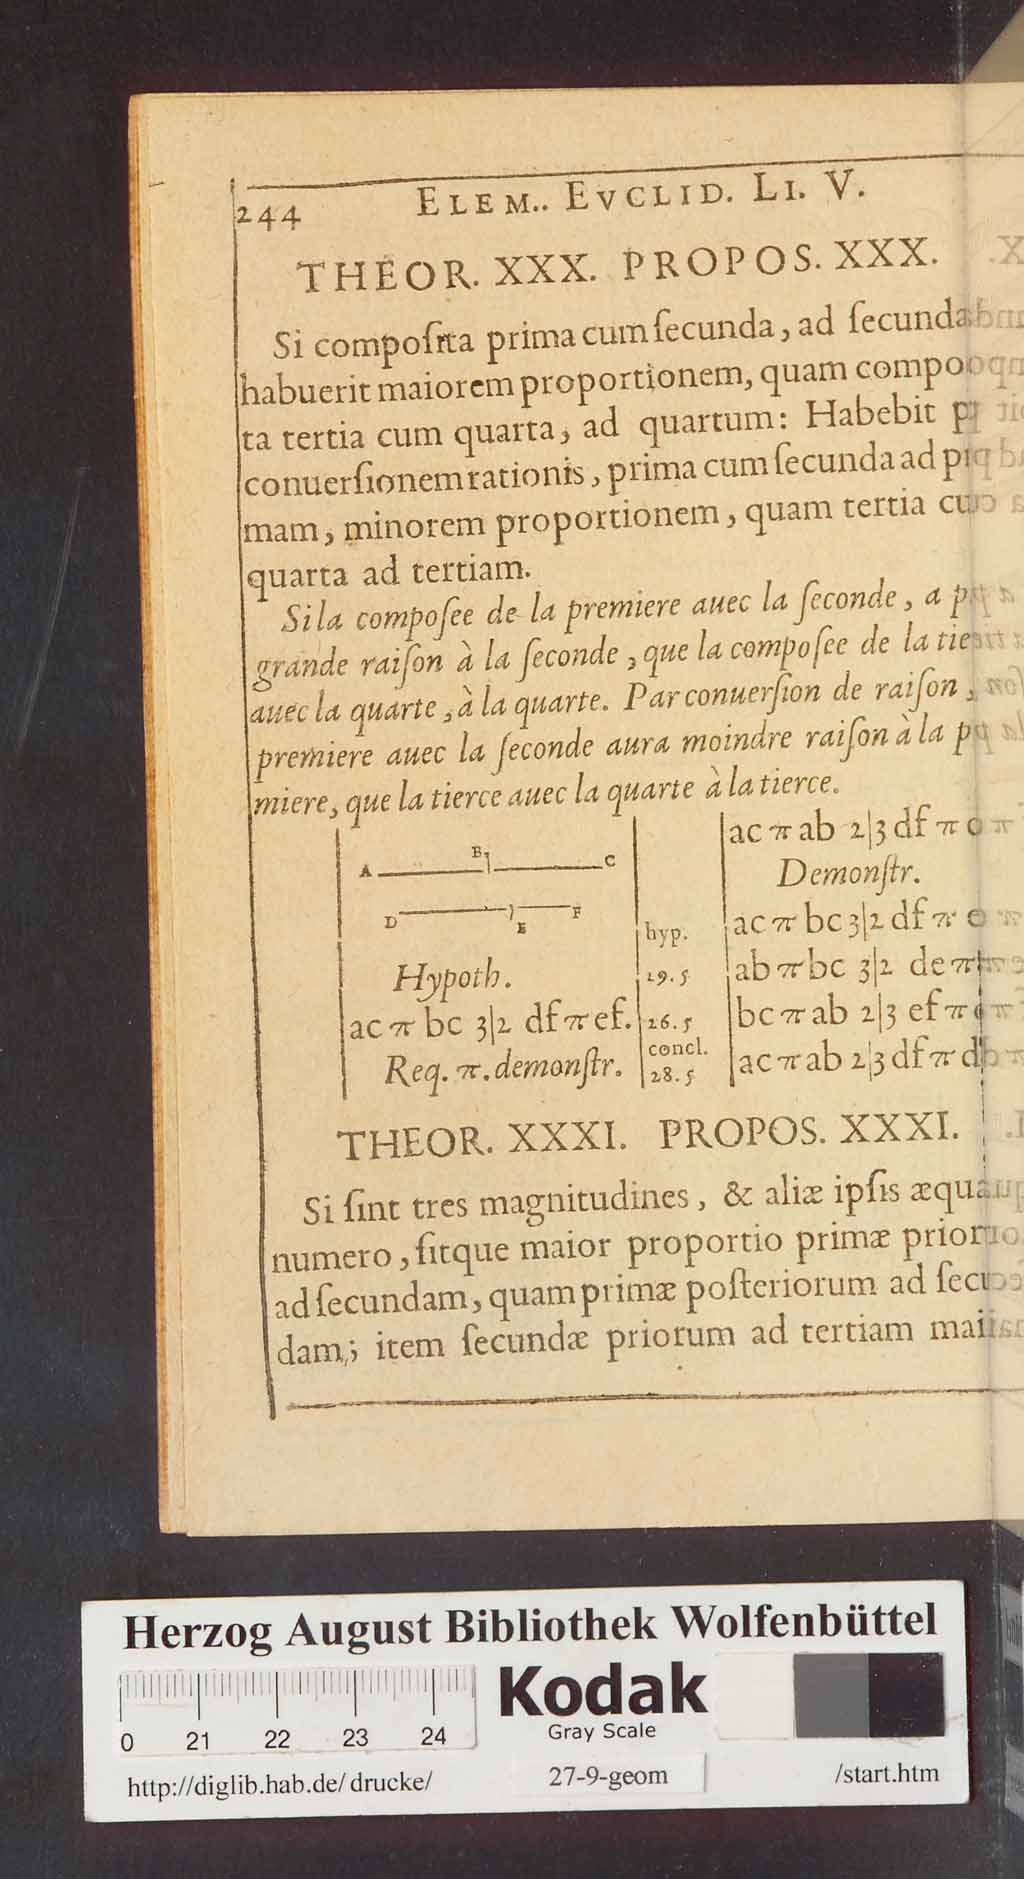 244 ELEM.. EVCLID. LI. V.
THEOR. XXX. PROPOS. XXX.
Si compoſita prima cum ſecunda, ad ſecunda
habuerit maiorem proportionem, quam compo
ta tertia cum quarta, ad quartum: Habebit
conuerſionem rationis, prima cum ſecunda ad
mam, minorem proportionem, quam tertia
quarta ad tertiam.
Si la compoſee de la premiere auec la ſeconde, a
grande raiſon à la ſeconde, que la compoſee de la
auec la quarte, à la quarte. Par conuerſion de raiſon,
premiere auec la ſeconde aura moindre raiſon à la
miere, que la tierce auec la quarte à la tierce.
A B C
D E F
Hypoth.
ac π bc 3|2 df π ef.
Req. π. demonſtr.
hyp.
29. 5
26. 5
concl.
28. 5
ac π ab 2|3 df π
Demonſtr.
ac π bc 3|2 df π
ab π bc 3|2 de π
bc π ab 2|3 ef π
ac π ab 2|3 df π
THEOR. XXXI. PROPOS. XXXI.
Si ſint tres magnitudines, & aliæ ipſis
numero, ſitque maior proportio primæ
ad ſecundam, quam primæ poſteriorum ad
dam; item ſecundæ priorum ad tertiam
Herzog August Bibliothek Wolfenbüttel
Kodak
Gray Scale
0 21 22 23 24
http://diglib.hab.de/drucke/ 27-9-geom /start.htm